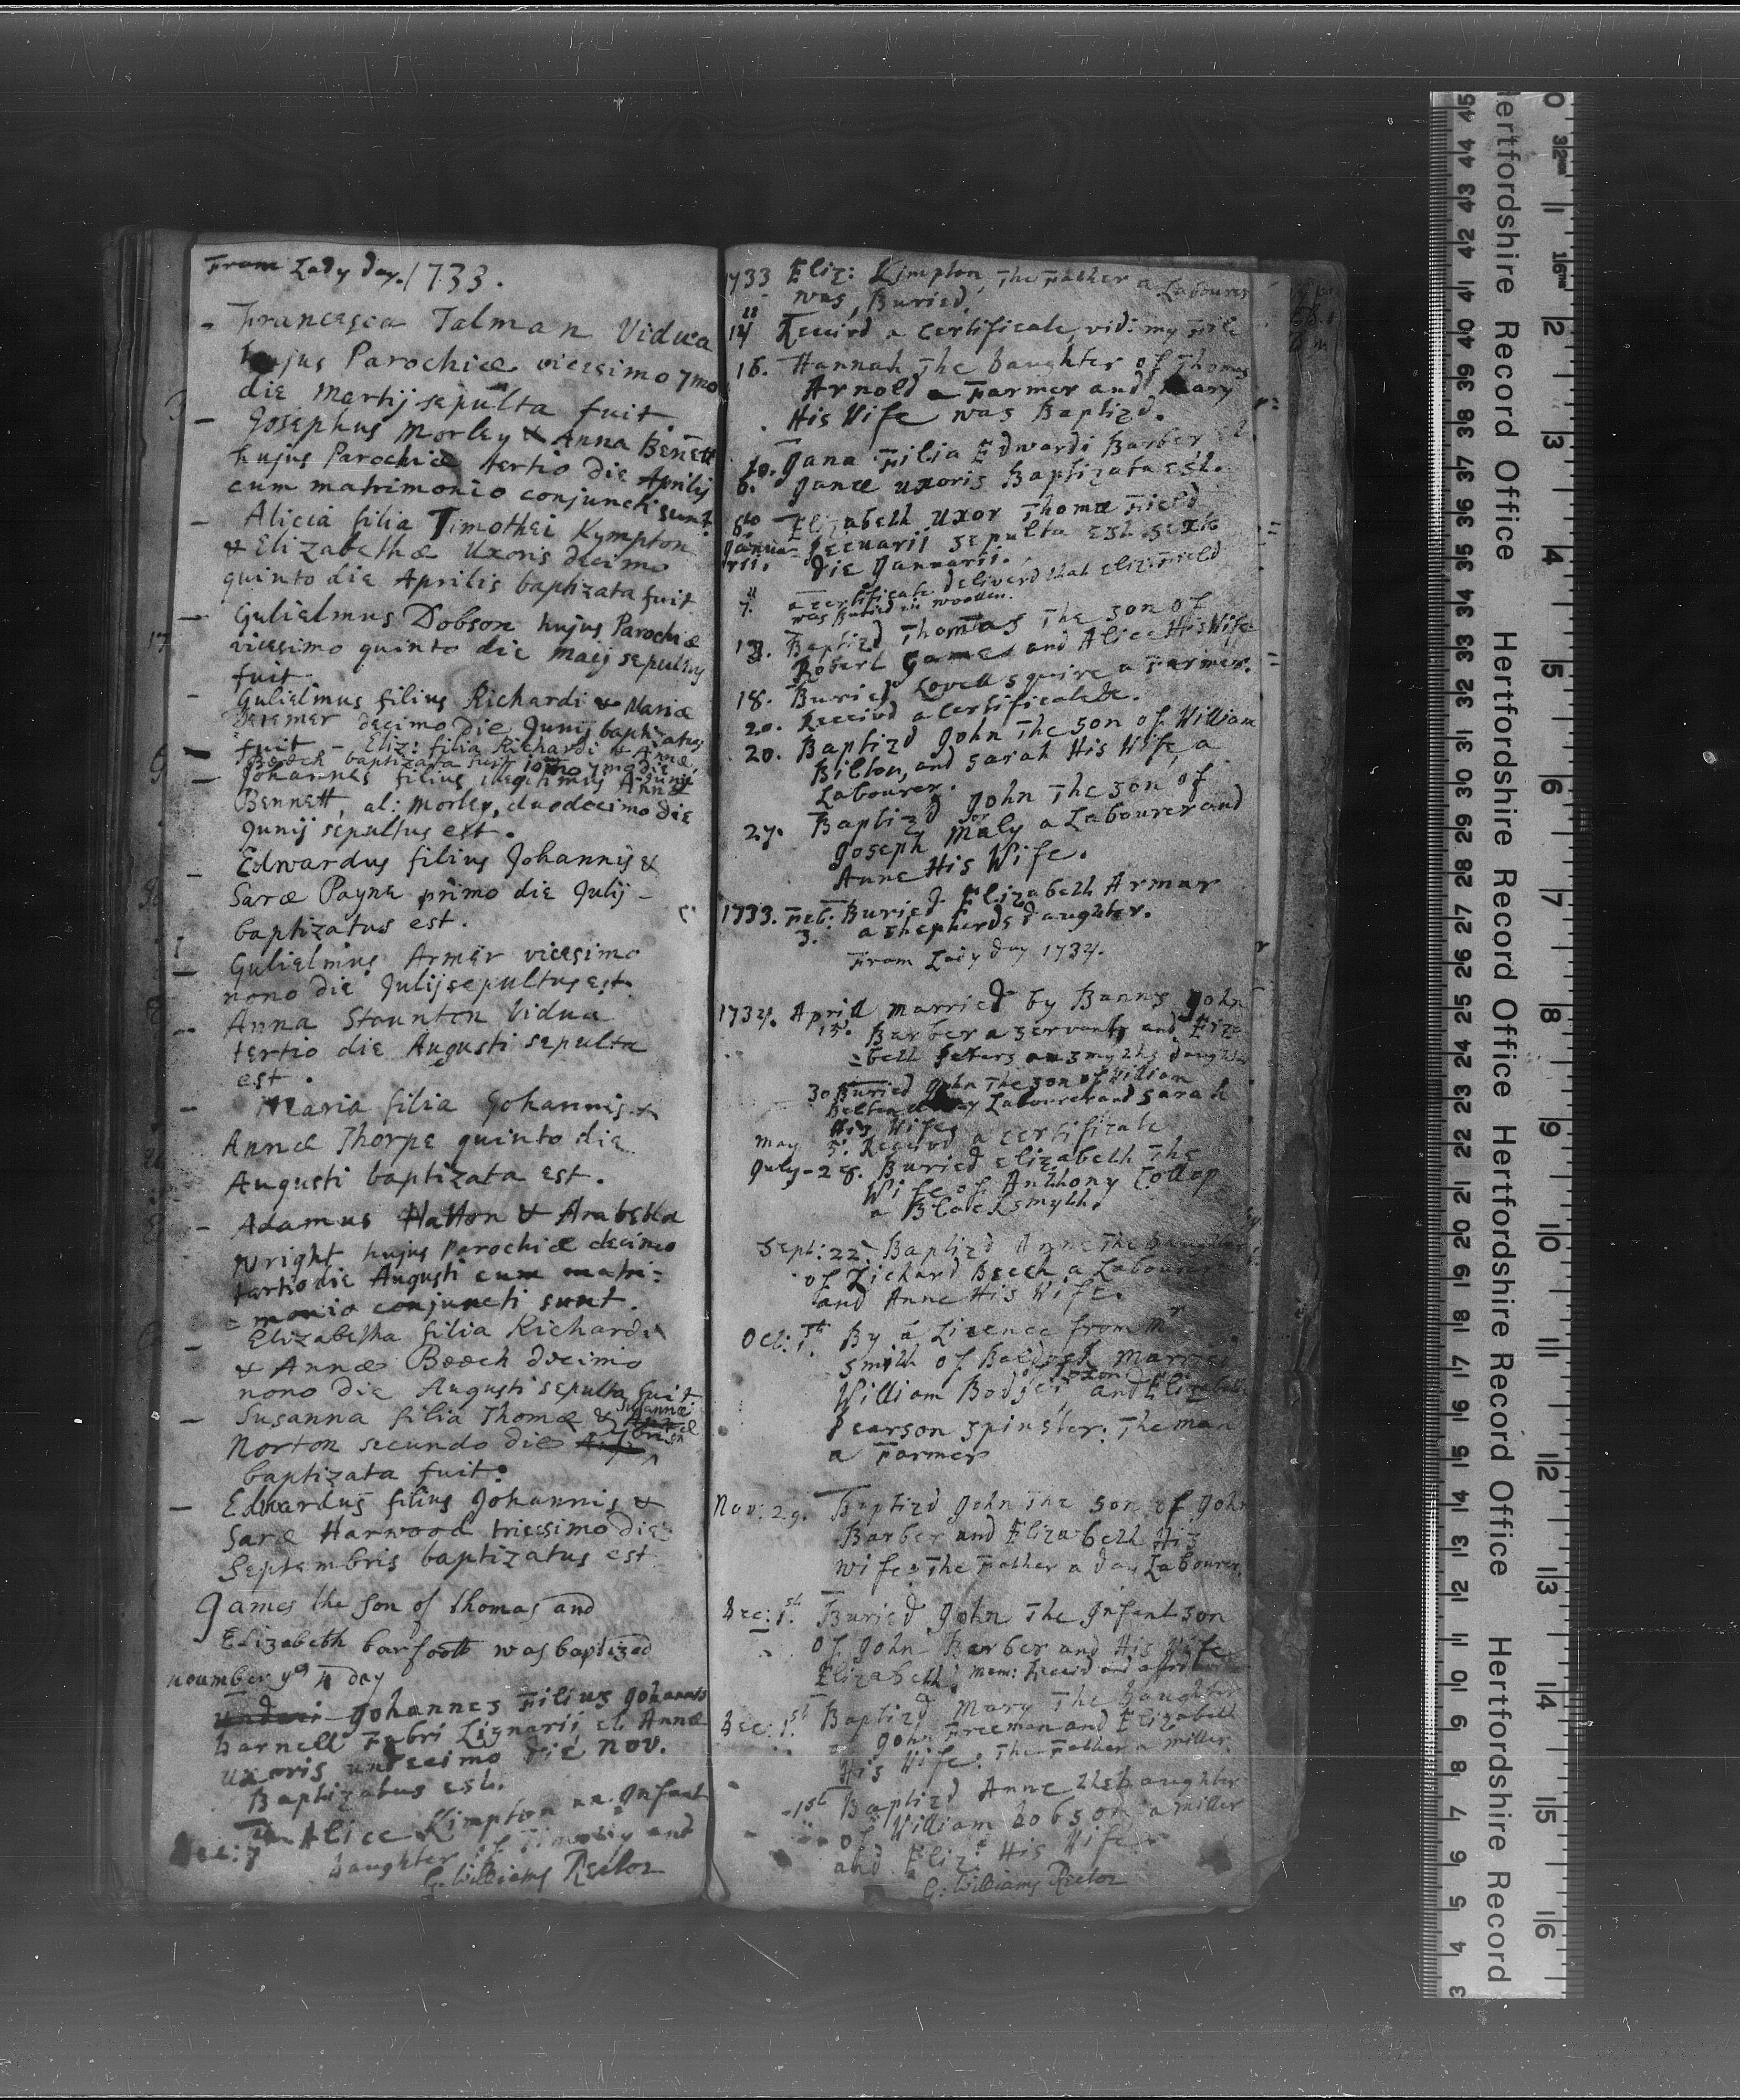 From Lady day. 1733.
- Francesca Talman Vidua
hujus Parochiæ vicesimo 7mo
die Martij sepulta fuit.
- Josephus Morley & Anna Benett
hujus Parochiæ tertio die Aprilij
cum matrimonio conjuncti sunt.
- Alicia filia Timothei Kympton
& Elizabethæ Uxoris decimo
quinto die Aprilis baptizata fuit
- Gulielmus Dobson hujus Parochiæ
vicesimo quinto die Maij sepultus
fuit.
- Gulielmus filius Richardi & Mariæ
decimo die Junij baptizatus
fuit - Eliz: filia Richardi & Annæ
Beech baptizata fuit
- Johannes filius illegitimus Annæ
Bennett, al: Morley, duodecimo die
Junij sepultus est.
- Edwardus filius Johannis &
Saræ Payne primo die Julij -
baptizatus est.
- Gulielmus Armer vicesimo
nono die Julij sepultus est.
- Anna Staunton Vidua
tertio die Augusti sepulta
est.
- Maria filia Johannis &
Annæ Thorpe quinto die
Augusti baptizata est.
- Adamus Hatton & Arabella
Wright hujus Parochiæ decimo
tertio die Augusti cum matri=
=monio conjuncti sunt.
- Elizabetha filia Richardi
& Annæ Beech decimo
nono die Augusti sepulta fuit
- Susanna filia Thomæ & Susannæ
Norton secundo die
baptizata fuit.
- Edwardus filius Johannis &
Saræ Harwood tricesimo die
Septembris baptizatus est
James the son of thomas and
Elizabeth barfoott was baptized
noumber ye 4 day
Johannes Filius Johannis
Darnell Fabri Lignarii et Annæ
uxoris undecimo die Nov.
Baptizatus est.
Dec: 7 Alice Kimpton an Infant
Daughter of Timothy and
G: Williams Rector
1733 Eliz: Kimpton, The Father a Labourer
was, Buried.
14 Receivd a certificate, vid: my File
16. Hannah The Daughter of Thomas
Arnold a Farmer and Mary
His Wife was Baptizd.
Jana Filia Edwardi Barber &
6. Janæ uxoris Baptizata est.
6to Elizabeth uxor Thomæ Field
Janua= Pecuarii sepulta est sexto
rii. die Januarii.
7. a certificate deliverd that Eliz: Field
was Buried in woollen.
13. Baptizd Thomas The son of
Robert Games and Alice His Wife
18. Buried Lovell Squire a Farmer.
20. Receivd a certificate.
20. Baptizd John The son of William
Bilton, and Sarah His Wife, a
Labourer.
27. Baptizd John The son of
Joseph Maly a Labourer and
Anne His Wife.
1733. Feb: Buried Elizabeth Armar
3. a shepherds Daughter.
From Lady day 1734.
1734. Aprill Married by Banns John
15. Barber a servant, and Eliza
=beth Peters a smyths daughter
30 Buried John The son of William
Labourer and Sarah
His Wife
May 5. Receivd a certificate
July - 28. Buried Elizabeth The
Wife of Anthony Collop
a Blacksmyth.
Sept: 22 Baptizd Anne The Daughter
of Richard Beech, a Labourer
and Anne His Wife.
Oct: 1. By a Licence from Mr
Smith of Baldock Married
William Bodger and Elizabeth
Pearson Spinster: The man
a Farmer
Nov: 29. Baptizd John The son of John
Barber and Elizabeth His
wife: The Father a day Labourer.
Dec: 1st. Buried John The Infant son
of John Barber and His Wife
Elizabeth.
Dec: 1st. Baptizd Mary The Daughter
of John Freeman and Elizabeth
His Wife: The Father a miller.
- 1st Baptizd Anne the Daughter
of William Dobson a miller
and Eliz: His Wife
G: Williams Rector
Hertfordshire Record Office Hertfordshire Record Office Hertfordshire Record Office Hertfordshire Record